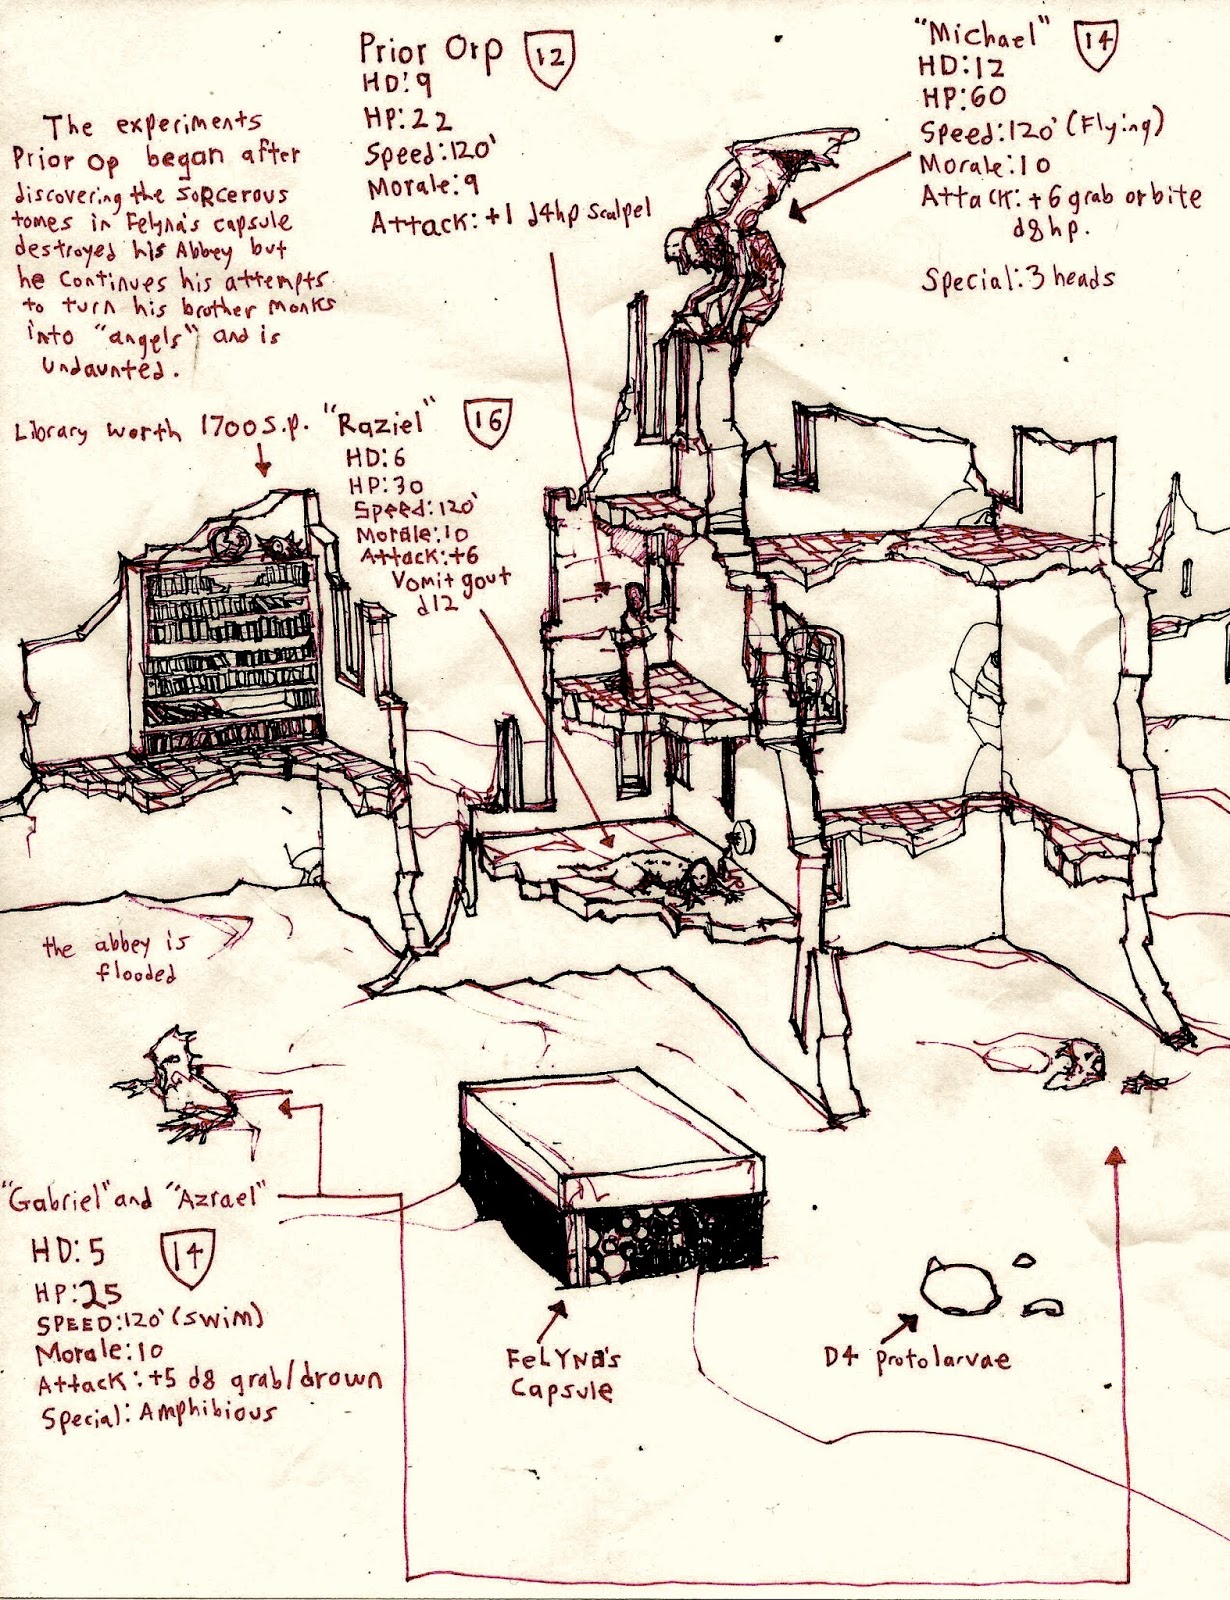 Prior Orp 12
HD: 9
HP: 22
Speed: 120'
Morale: 9
Attack: +1 d4hp scalpel
"Michael" 14
HD: 12
HP: 60
Speed: 120' (Flying)
Morale: 10
Attack: +6 grab or bite
d8hp.
Special: 3 heads
The experiments
Prior Op began after
discovering the sorcerous
tomes in Felyna's capsule
destroyed his Abbey but
he continues his attempts
to turn his brother monks
into "angels" and is
undaunted.
Library worth 1700 s.p.
"Raziel" 16
HD: 6
HP: 30
Speed: 120'
Morale: 10
Attack: +6
Vomit gout
d12
the abbey is
flooded
"Gabriel" and "Azrael"
HD: 5 14
HP: 25
SPEED: 120' (swim)
Morale: 10
Attack: +5 d8 grab/drown
Special: Amphibious
FeLYNa's
Capsule
D4 protolarvae